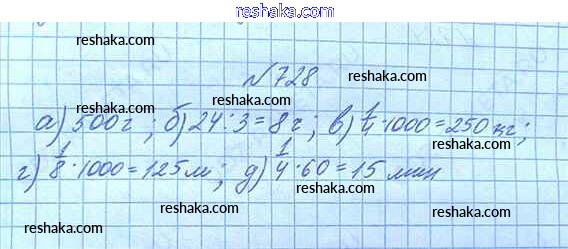 reshaka.com
reshaka.com
№728
reshaka.com
reshaka.com
а) 500 г; б) 24 : 3 = 8 г; в) 1/4 · 1000 = 250 кг;
reshaka.com reshaka.com
г) 1/8 · 1000 = 125 м; д) 1/4 · 60 = 15 мин
reshaka.com
reshaka.com
reshaka.com
reshaka.com